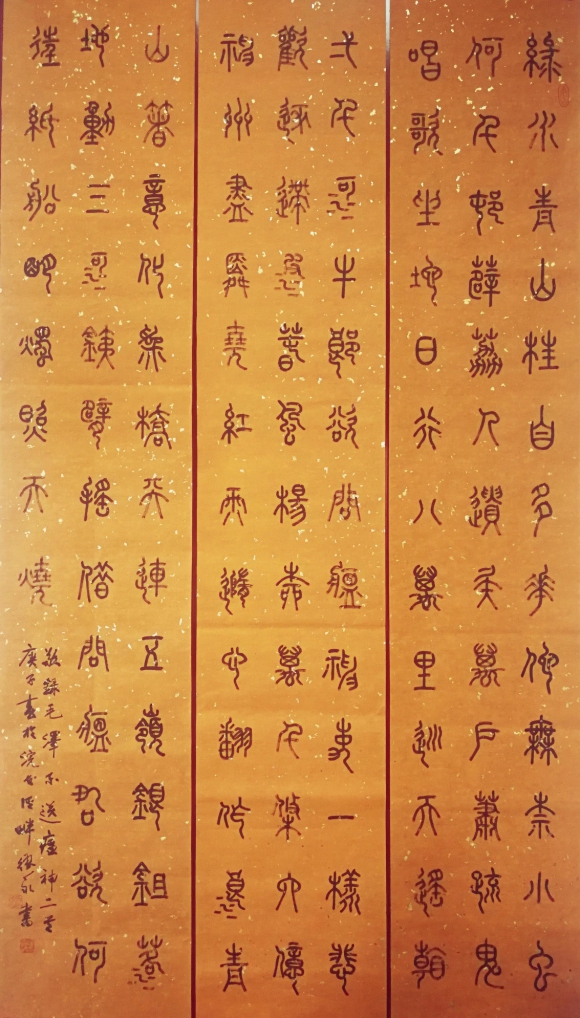 綠水青山枉自多華佗無奈小蟲
何千邨薜荔人遺矢萬戶蕭疏鬼
唱歌坐地日行八萬里巡天遙看
弌千河牛郎欲問瘟神事一樣悲
歡逐逝波春風楊柳萬千條六億
神州盡舜堯紅雨隨心翻作浪青
山著意化為橋天連五嶺銀鉏落
地動三河鐵臂搖借問瘟君欲何
往紙船明燭照天燒
敬錄毛澤東送瘟神二首
庚子於浣花溪畔書